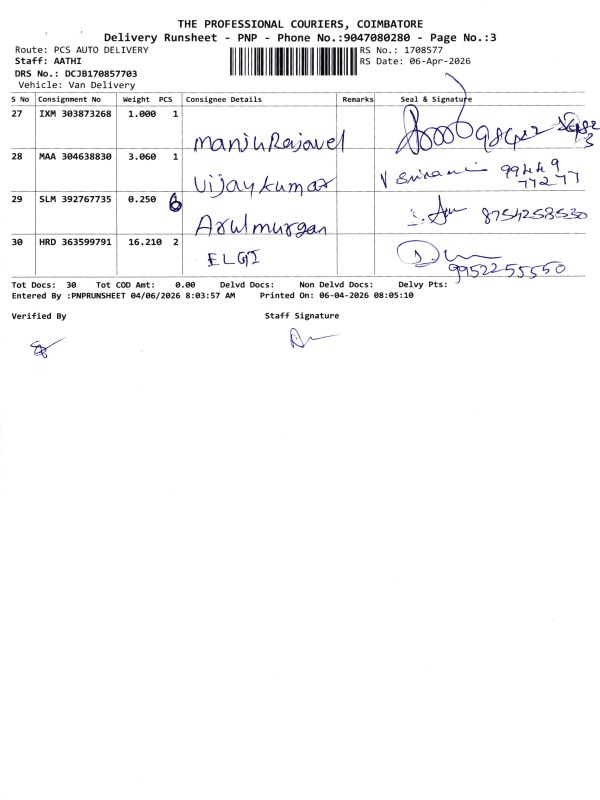 THE PROFESSIONAL COURIERS, COIMBATORE
Delivery Runsheet - PNP - Phone No.:9047080280 - Page No.:3
Route: PCS AUTO DELIVERY
RS No.: 1708577
Staff: AATHI
RS Date: 06-Apr-2026
DRS No.: DCJB170857703
Vehicle: Van Delivery
S No Consignment No Weight PCS Consignee Details Remarks Seal & Signature
27 IXM 303873268 1.000 1 Manju Rajavel
28 MAA 304638830 3.060 1 Vijaykumar 99449 77277
29 SLM 392767735 0.250 6 Arulmurgan 8754258530
30 HRD 363599791 16.210 2 ELGI 9952255550
Tot Docs: 30 Tot COD Amt: 0.00 Delvd Docs: Non Delvd Docs: Delvy Pts:
Entered By :PNPRUNSHEET 04/06/2026 8:03:57 AM Printed On: 06-04-2026 08:05:10
Verified By Staff Signature